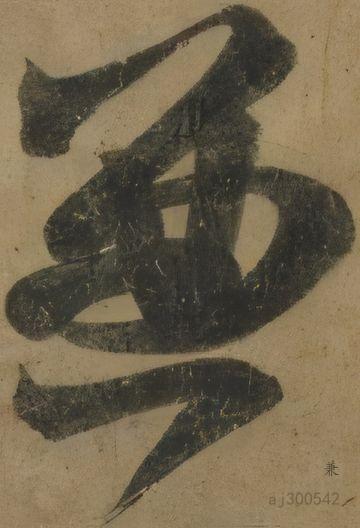 兼
兼
aj300542